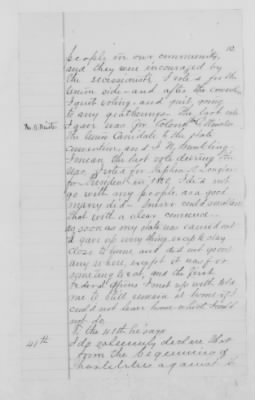 10
people in our community,
and they were encouraged by
the secessionists I voted for the
Union side - and after the
I quit voting - and quit going
to any gatherings. The last vote
I gave was for Colonel
the Union Candidate to the State
convention, and J. W.
I mean the last vote during the
War. I voted for Stephen A. Douglas
for President in 1860. I did not
go with my people, as a good
many did - I never could swallow
that with a clear conscience -
as soon as my state was carried out
I gave up everything except stay
close to home and did not go
any where except it was for
something to eat, and the first
Federal officers I met up with told
me to still remain at home if I
could not leave home which I could
not do.
To the 41st he says
41st
I do solemnly declare that
from the beginning of
hostilities against the